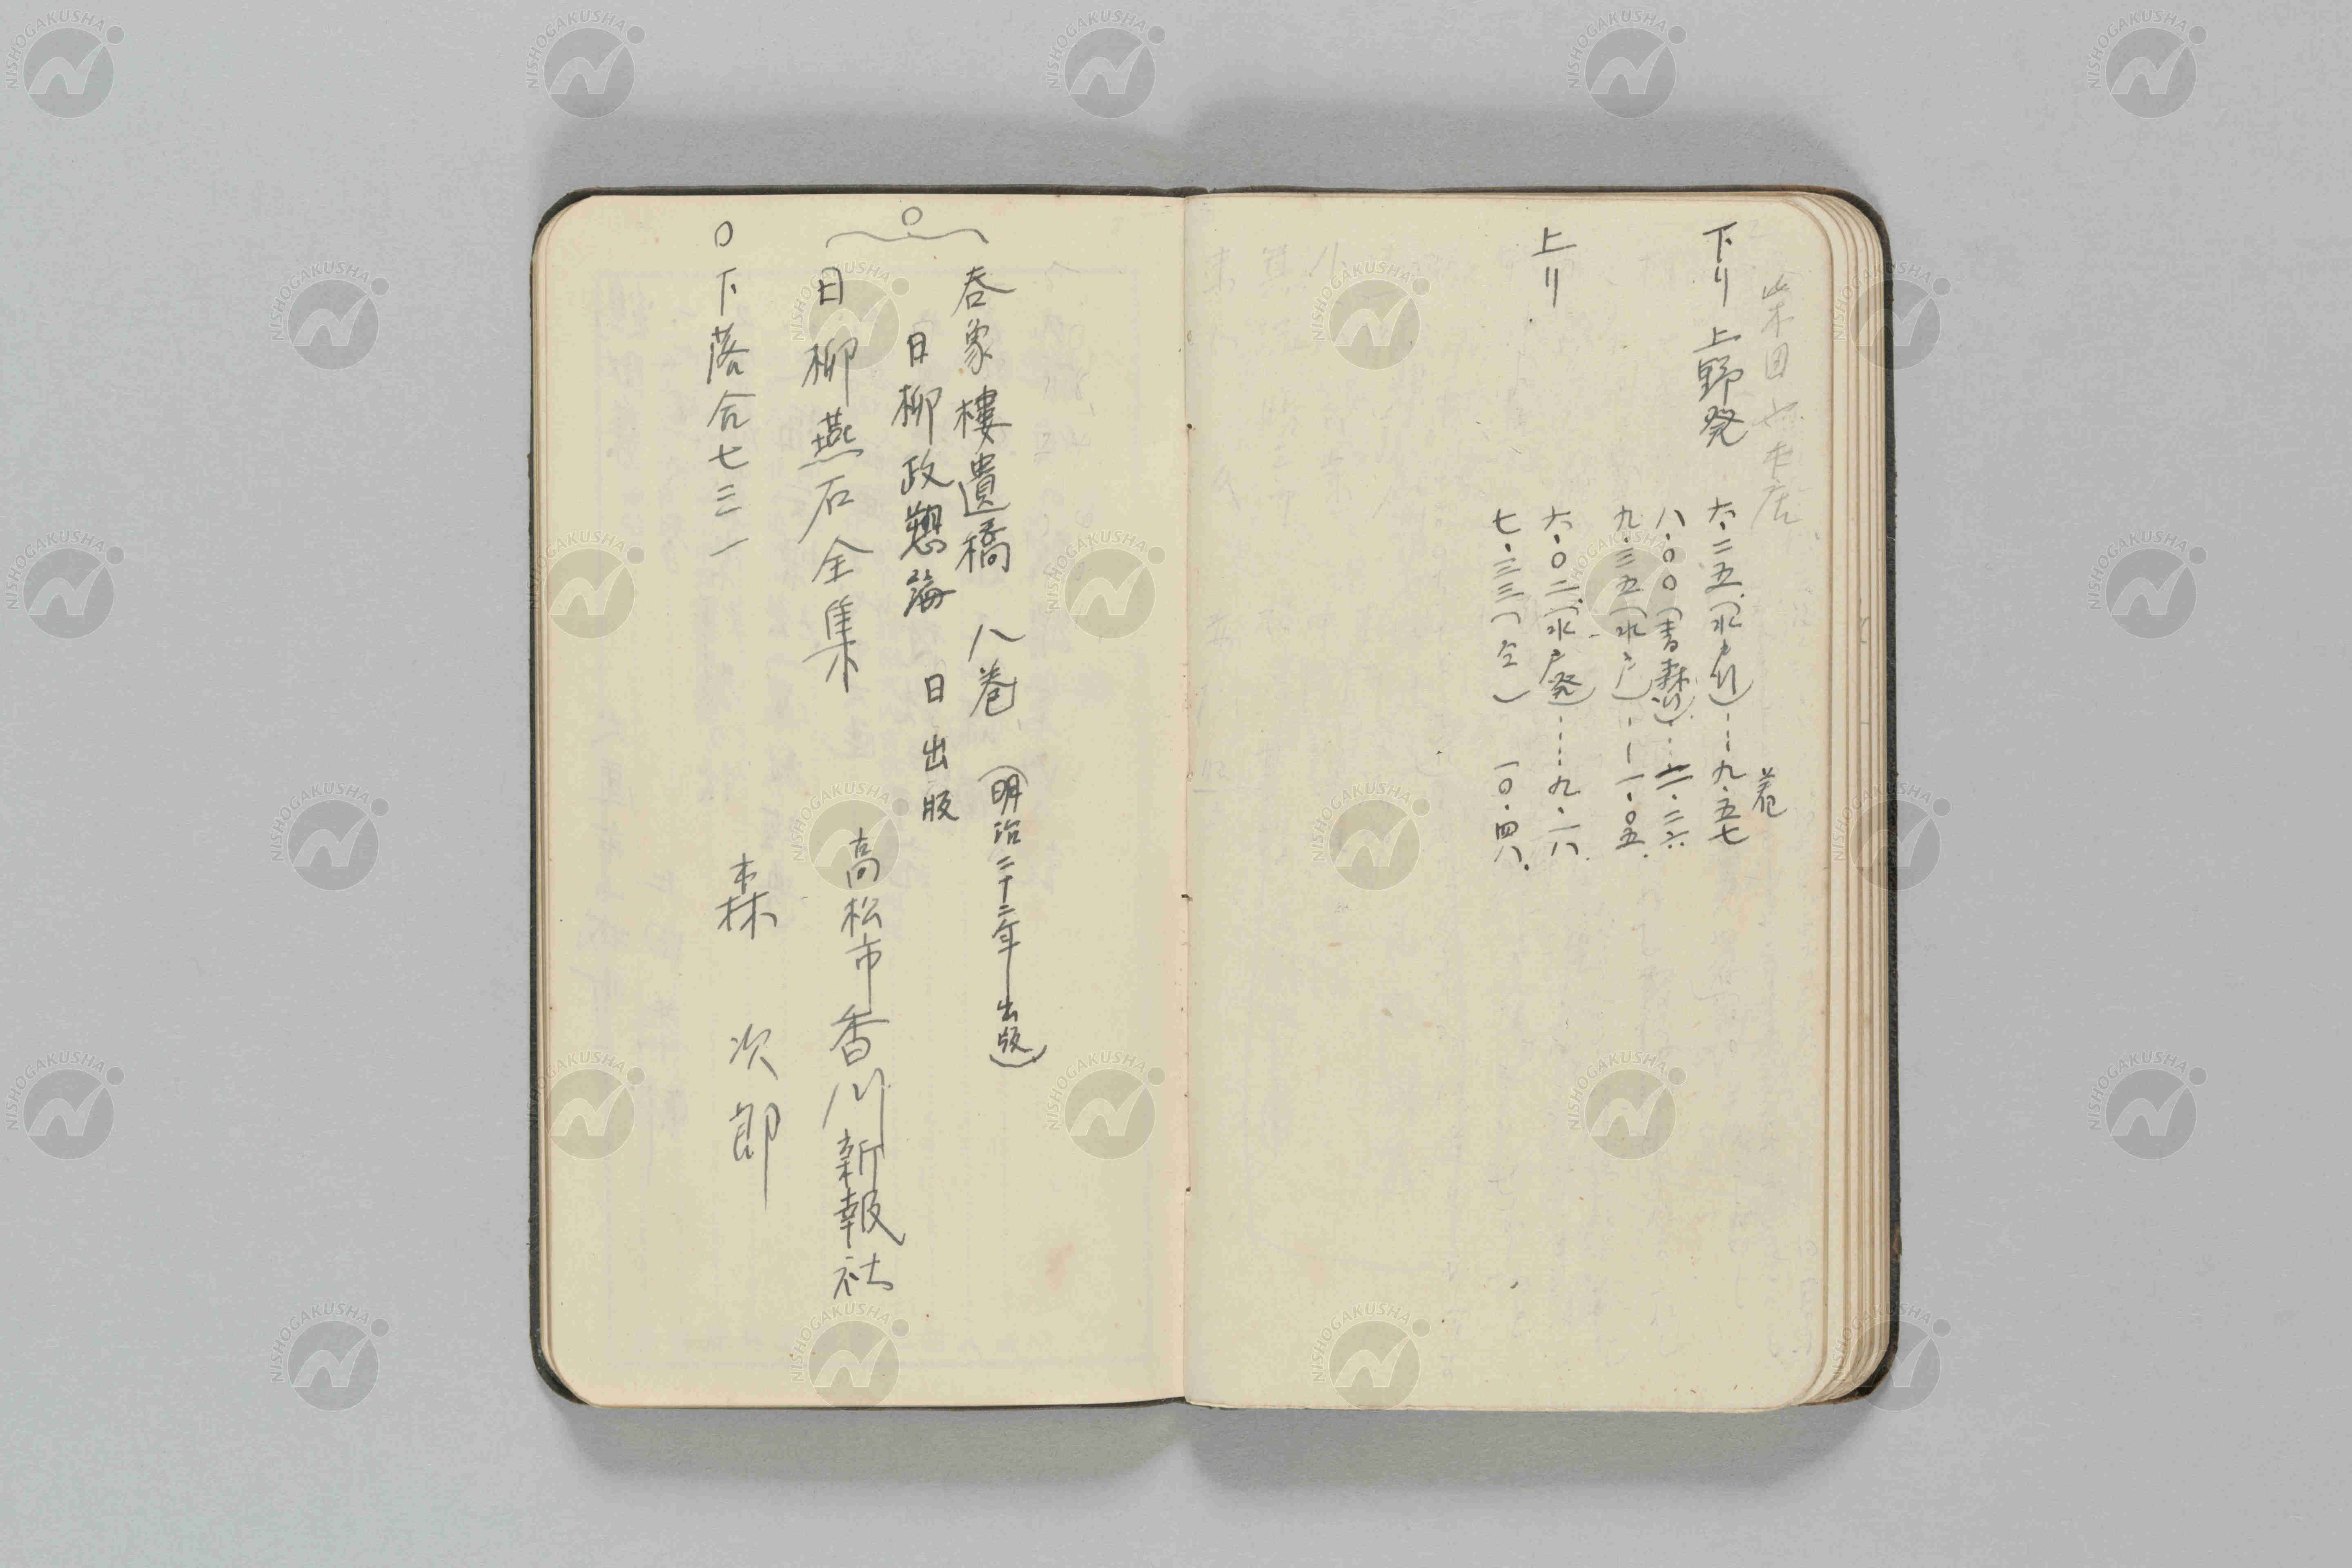 下り 上野発 着
六・二五(水戸行)---九・五七
八・〇〇(青森行)……一一・二六
九・三五(水戸)---一・〇五
上り 六・〇二(水戸発)……九・一八
七・三三(仝) 一〇・四八
呑象樓遺稿 八巻 (明治二十二年出版)
日柳政愬 日出版
日柳燕石全集 高松市香川新報社
〇下落合七三一 森次郎
NISHOGAKUSHA